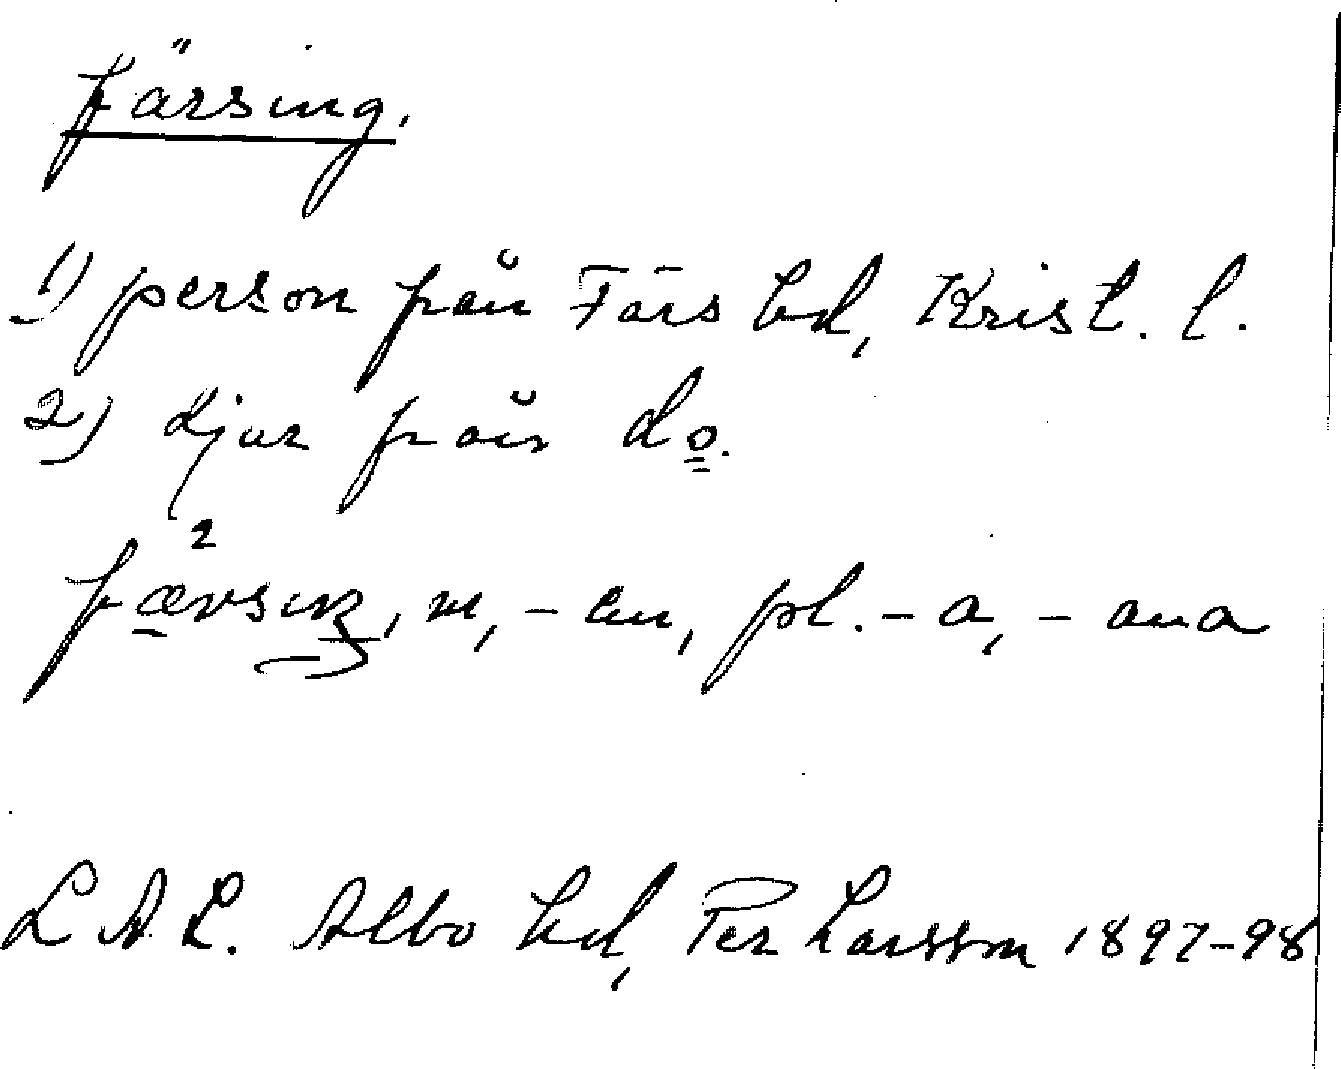 färsing.
1) person från Färs hd, Krist. l.
2) djur från do.
m, -en, pl. -a, -ana
L A L. Albo hd, Per Larsson 1897-98